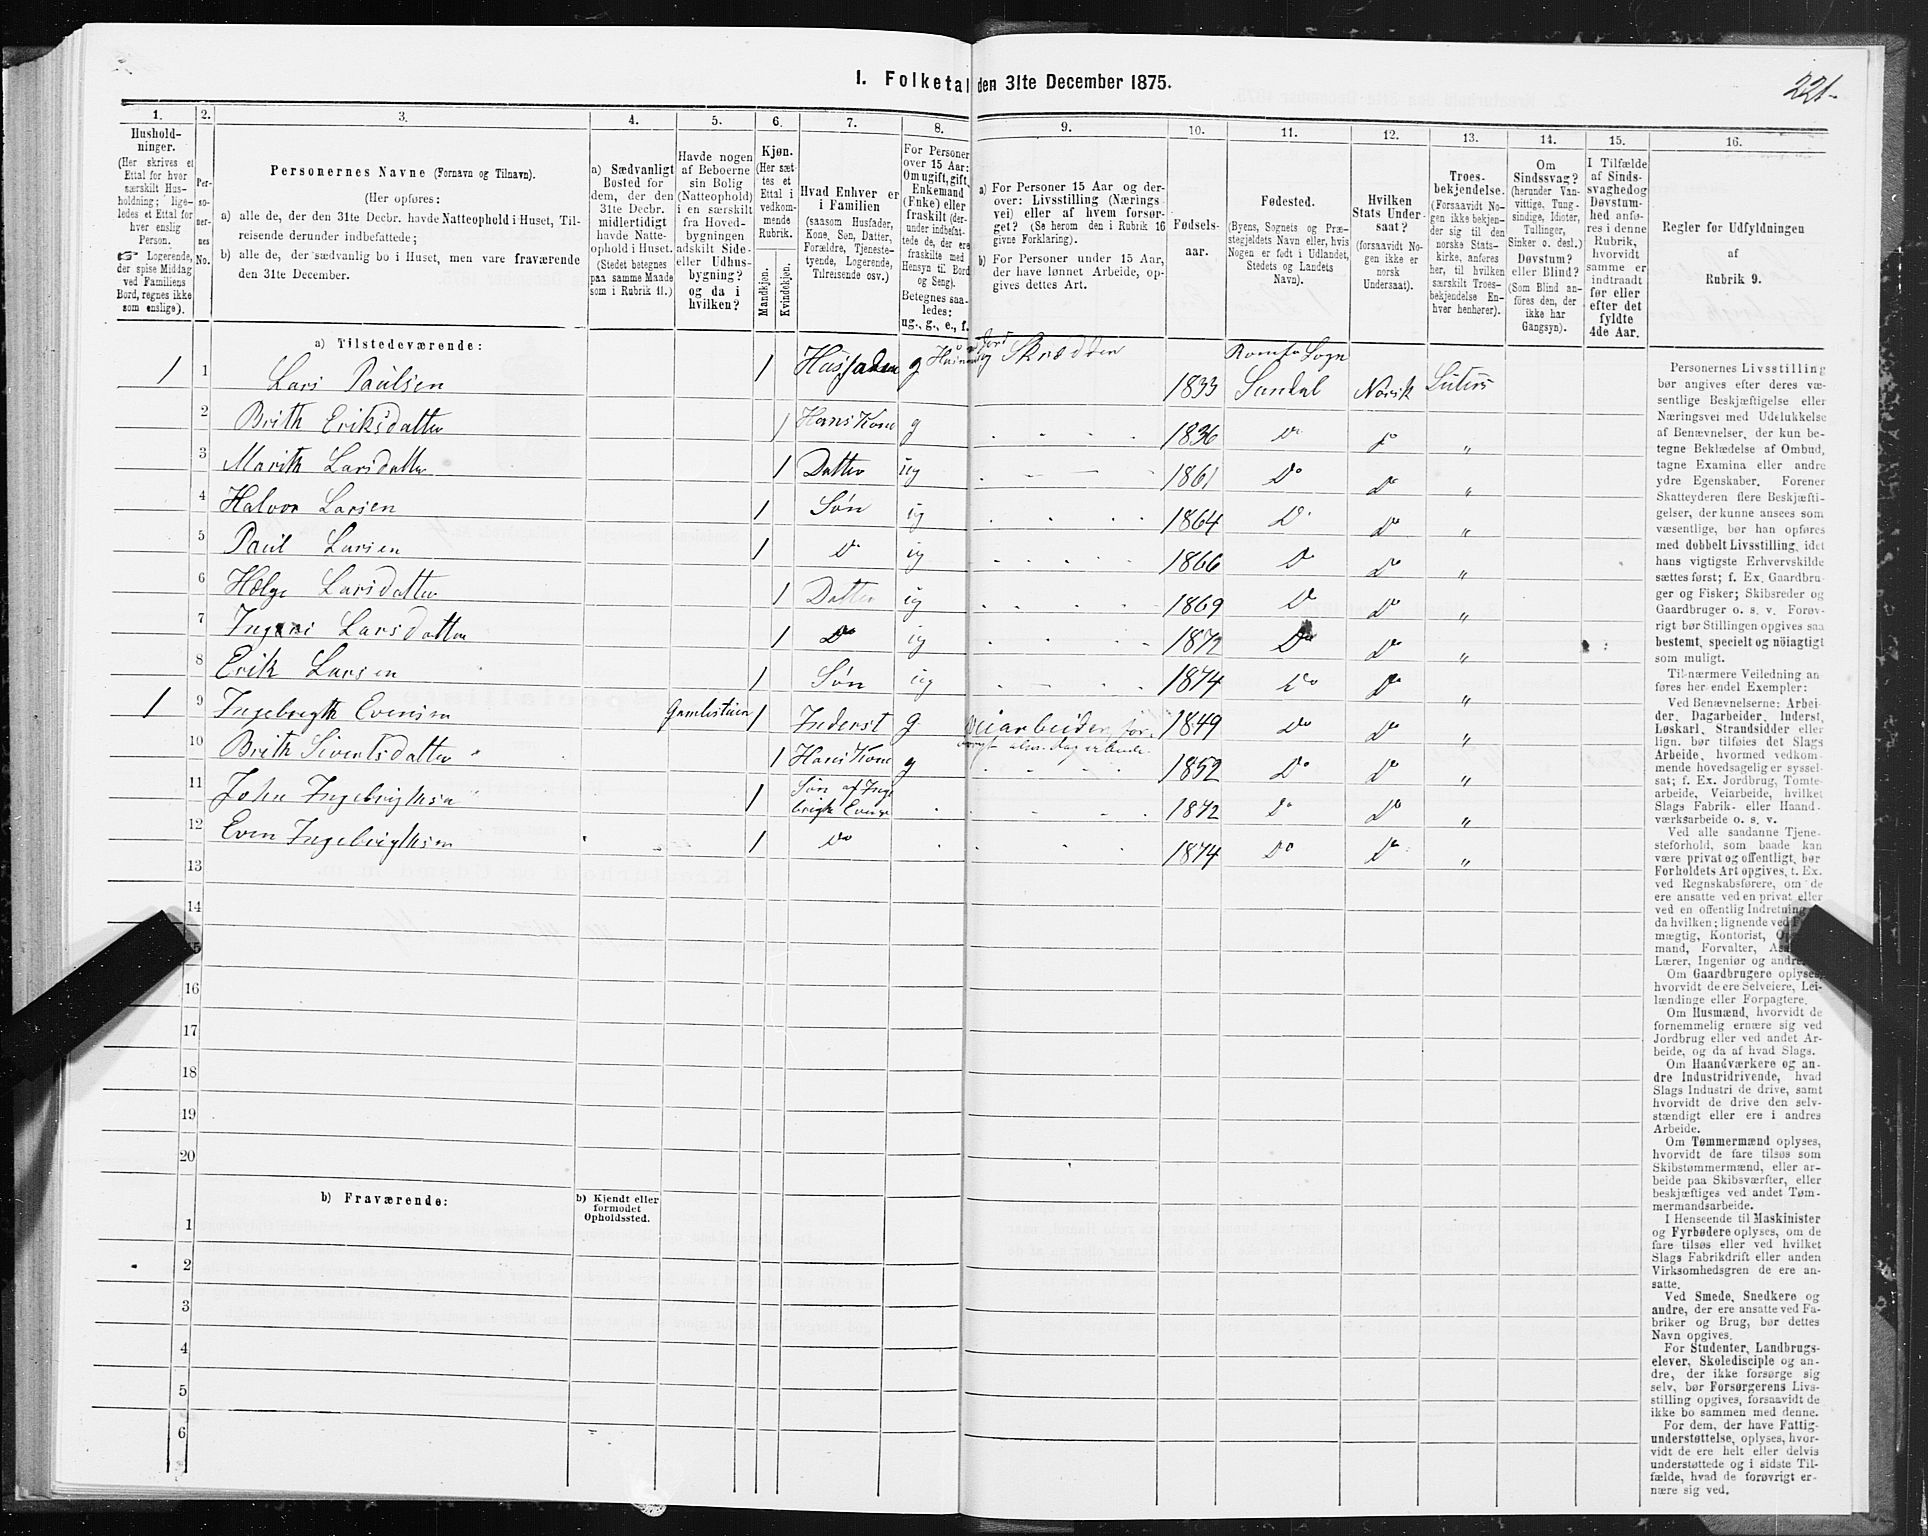 221.
I. Folketal den 31te December 1875.
1. 2. 3. 4. 5. 6. 7. 8. 9. 10. 11. 12. 13. 14. 15. 16.
Hushold-
ninger.
(Her skrives et
Ettal for hver
særskilt Hus-
holdning; lige-
ledes et Ettal for
hver enslig
Person.
☞ Logerende,
der spise Middag
ved Familiens
Bord, regnes ikke
som enslige).
Per-
so-
ner-
nes
No.
Personernes Navne (Fornavn og Tilnavn).
(Her opføres:
a) alle de, der den 31te Decbr. havde Natteophold i Huset, Til-
reisende derunder indbefattede;
b) alle de, der sædvanlig bo i Huset, men vare fraværende
den 31te December.
a) Sædvanligt
Bosted for
dem, der den
31te Decbr.
midlertidigt
havde Natte-
ophold i Huset.
(Stedet betegnes
paa samme Maade
som i Rubrik 11.)
Havde nogen
af Beboerne
sin Bolig
(Natteophold)
i en særskilt
fra Hoved-
bygningen
adskilt Side-
eller Udhus-
bygning?
og da i
hvilken?
Kjøn.
(Her sæt-
tes et
Ettal i
vedkom-
mende
Rubrik.
Mandkjøn.
Kvindekjøn.
Hvad Enhver er
i Familien
(saasom Husfader,
Kone, Søn, Datter,
Forældre, Tjeneste-
tyende, Logerende,
Tilreisende osv.)
For Personer
over 15 Aar:
Om ugift, gift,
Enkemand
(Enke) eller
fraskilt (der-
under indbefat-
tede de, der ere
fraskilte med
Hensyn til Bord
og Seng).
Betegnes saa-
ledes:
ug., g., e., f.
a) For Personer 15 Aar og der-
over: Livsstilling (Nærings-
vei) eller af hvem forsør-
get? (Se herom den i Rubrik 16
givne Forklaring).
b) For Personer under 15 Aar,
der have lønnet Arbeide, op-
gives dettes Art.
Fødsels-
aar.
Fødested.
(Byens, Sognets og Præ-
stegjeldets Navn eller, hvis
Nogen er født i Udlandet,
Stedets og Landets
Navn).
Hvilken
Stats Under-
saat?
(forsaavidt No-
gen ikke er
norsk
Undersaat).
Troes-
bekjendelse.
(Forsaavidt No-
gen ikke bekjen-
der sig til den
norske Stats-
kirke, anføres
her, til hvilken
særskilt Troes-
bekjendelse En-
hver henhører).
Om
Sindssvag?
(herunder Van-
vittige, Tung-
sindige, Idioter,
Tullinger,
Sinker o. desl.)
Døvstum?
eller Blind?
(Som Blind an-
føres den, der
ikke har
Gangsyn).
I Tilfælde
af Sinds-
svaghed og
Døvstum-
hed anfø-
res i denne
Rubrik,
hvorvidt
samme er
indtraadt
før eller
efter det
fyldte
4de Aar.
Regler for Udfyldningen
af
Rubrik 9.
a) Tilstedeværende:
1 1 Lars Paulsen 1 Husfader g Skrædder 1833 Romfo Sogn Sundal Norsk Luters
2 Brith Eriksdatter 1 Hans Kone g 1836 Do Do "
3 Marith Larsdatter 1 Datter ug 1861 Do Do "
4 Halvor Larsen 1 Søn ug 1864 Do Do "
5 Paul Larsen 1 Do ug 1866 Do Do "
6 Helge Larsdatter 1 Datter ug 1869 Do Do "
7 Ingeri Larsdatter 1 Do ug 1872 Do Do "
8 Erik Larsen 1 Søn ug 1874 Do Do "
1 9 Ingebrigth Evensen Gamlestuen 1 Inderst g Veiarbeider 1849 Do Do "
10 Brith Sivertsdatter 1 Hans Kone g 1852 Do Do "
11 John Ingebrigthsen 1 Søn af Inge brigth Evense 1872 Do Do "
12 Even Ingebrigthsen 1 Do 1874 Do Do "
13
14
15
16
17
18
19
20
b) Fraværende:
b) Kjendt eller
formodet
Opholdssted.
1
2
3
4
5
6
Personernes Livsstilling
bør angives efter deres væ-
sentlige Beskjæftigelse eller
Næringsvei med Udelukkelse
af Benævnelser, der kun be-
tegne Beklædelse af Ombud,
tagne Examina eller andre
ydre Egenskaber. Forener
Skatteyderen flere Beskjæfti-
gelser, der kunne ansees som
væsentlige, bør han opføres
med dobbelt Livsstilling, idet
hans vigtigste Erhvervskilde
sættes først; f. Ex. Gaardbru-
ger og Fisker; Skibsreder og
Gaardbruger o. s. v. Forøv-
rigt bør Stillingen opgives saa
bestemt, specielt og nöiagtigt
som muligt.
Til nærmere Veiledning an-
føres her endel Exempler:
Ved Benævnelserne: Arbei-
der, Dagarbeider, Inderst,
Løskarl, Strandsidder eller
lign. bør tilføies det Slags
Arbeide, hvormed vedkom-
mende hovedsagelig er syssel-
sat; f. Ex. Jordbrug, Tomte-
arbeide, Veiarbeide, hvilket
Slags Fabrik- eller Haand-
værksarbeide o. s. v.
Ved alle saadanne Tjene-
steforhold, som baade kan
være privat og offentligt, bør
Forholdets Art opgives, t. Ex.
ved Regnskabsførere, om de
ere ansatte ved en privat eller
ved en offentlig Indretning
da hvilken; lignende ved
mægtig, Kontorist,
mand, Forvalter,
Lærer, Ingeniør og andre.
Om Gaardbrugere oplyses,
hvorvidt de ere Selveiere, Lei-
lændinge eller Forpagtere.
Om Husmænd, hvorvidt de
fornemmelig ernære sig ved
Jordbrug eller ved andet Ar-
beide, og da af hvad Slags.
Om Haandværkere og an-
dre Industridrivende, hvad
Slags Industri de drive, samt
hvorvidt de drive den selv-
stændigt eller ere i andres
Arbeide.
Om Tømmermænd oplyses,
hvorvidt de fare tilsøs som
Skibstømmermænd, eller ar-
beide paa Skibsværfter, eller
beskjæftiges ved andet Tøm-
mermandsarbeide.
I Henseende til Maskinister
og Fyrbødere oplyses, om de
fare tilsøs eller ved hvilket
Slags Fabrikdrift eller anden
Virksomhedsgren de ere an-
satte.
Ved Smede, Snedkere og
andre, der ere ansatte ved Fa-
briker og Brug, bør dettes
Navn opgives.
For Studenter, Landbrugs-
elever, Skoledisciple og an-
dre, der ikke forsørge sig
selv, bør Forsørgerens Livs-
stilling opgives, forsaavidt de
ikke bo sammen med denne.
For dem, der have Fattig-
understøttelse, oplyses, hvor-
vidt de ere helt eller delvis
understøttede og i sidste Til-
fælde, hvad de forøvrigt er-
nære sig ved.